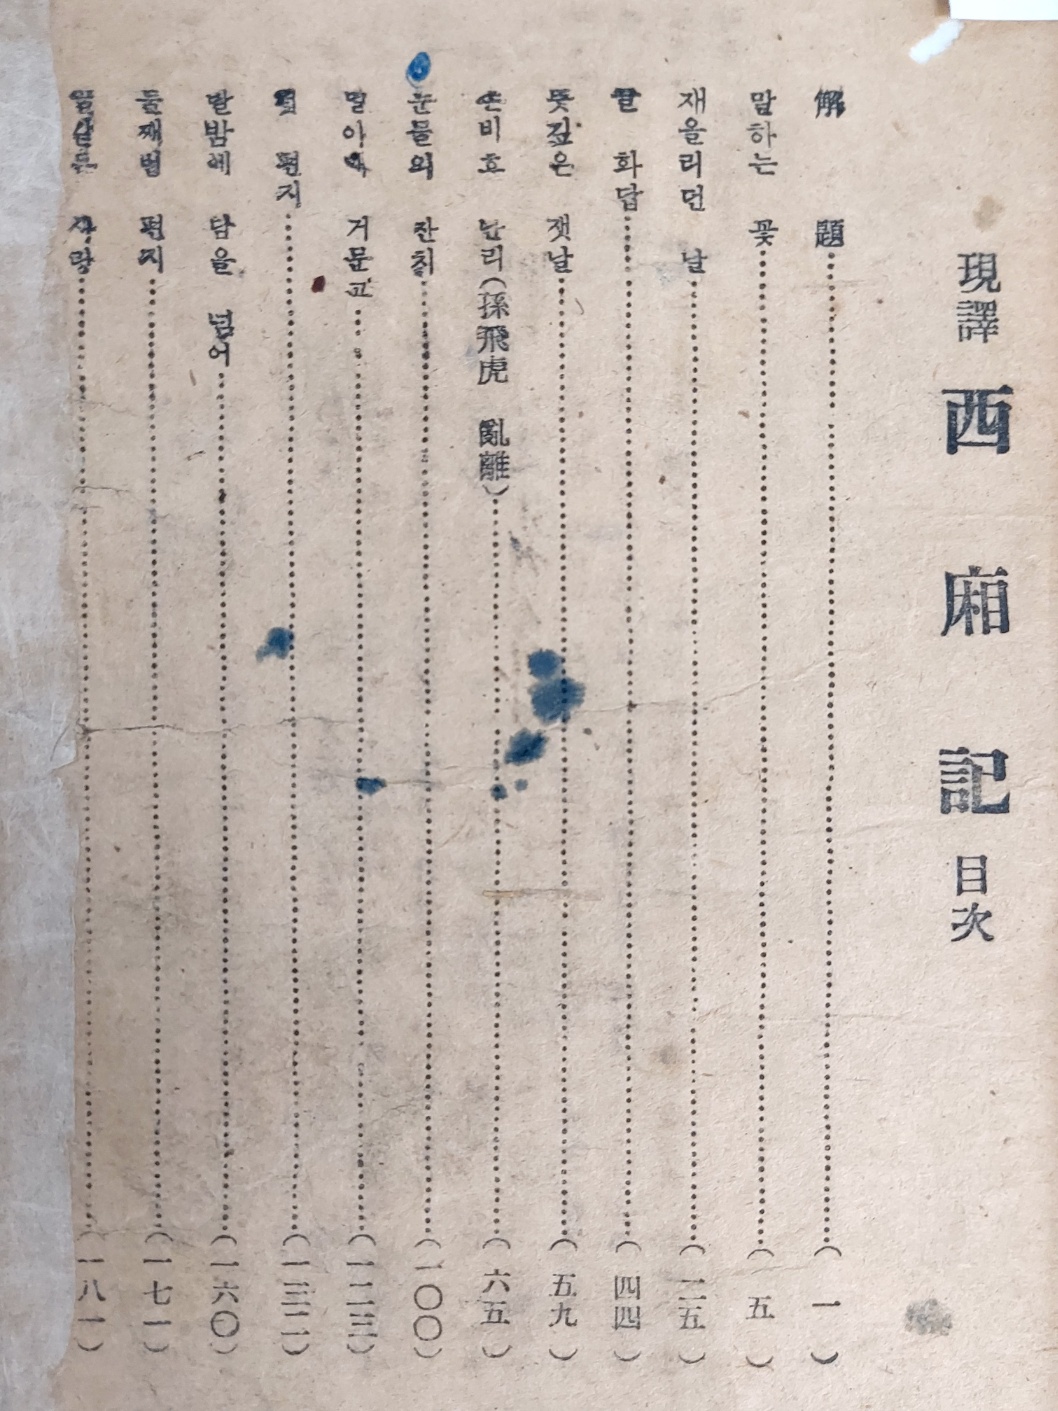 現譯 西廂記 目次
解題……(一)
말하는 꽃……(五)
재올리던 날……(二五)
글 화답……(四四)
뜻깊은 잿날……(五九)
손비호 난리(孫飛虎 亂離)……(六五)
눈물의 잔치……(一〇〇)
거문고……(一二三)
편지……(一三二)
달밤에 담을 넘어……(一六〇)
둘째번 편지……(一七一)
사랑……(一八一)